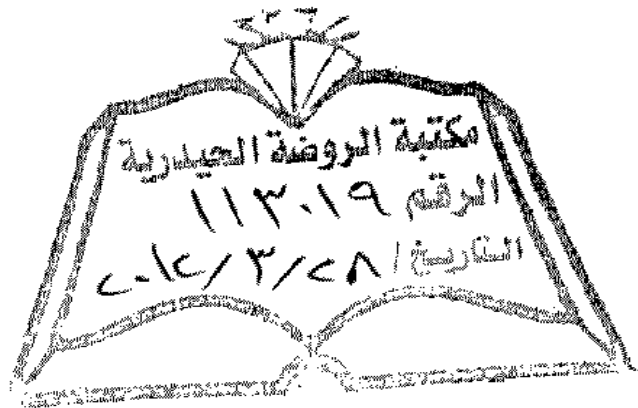 مكتبة الروضة الحيدرية
الرقم ١١٣٠١٩
التاريخ / ٢٨ / ٣ / ٢٠١٢